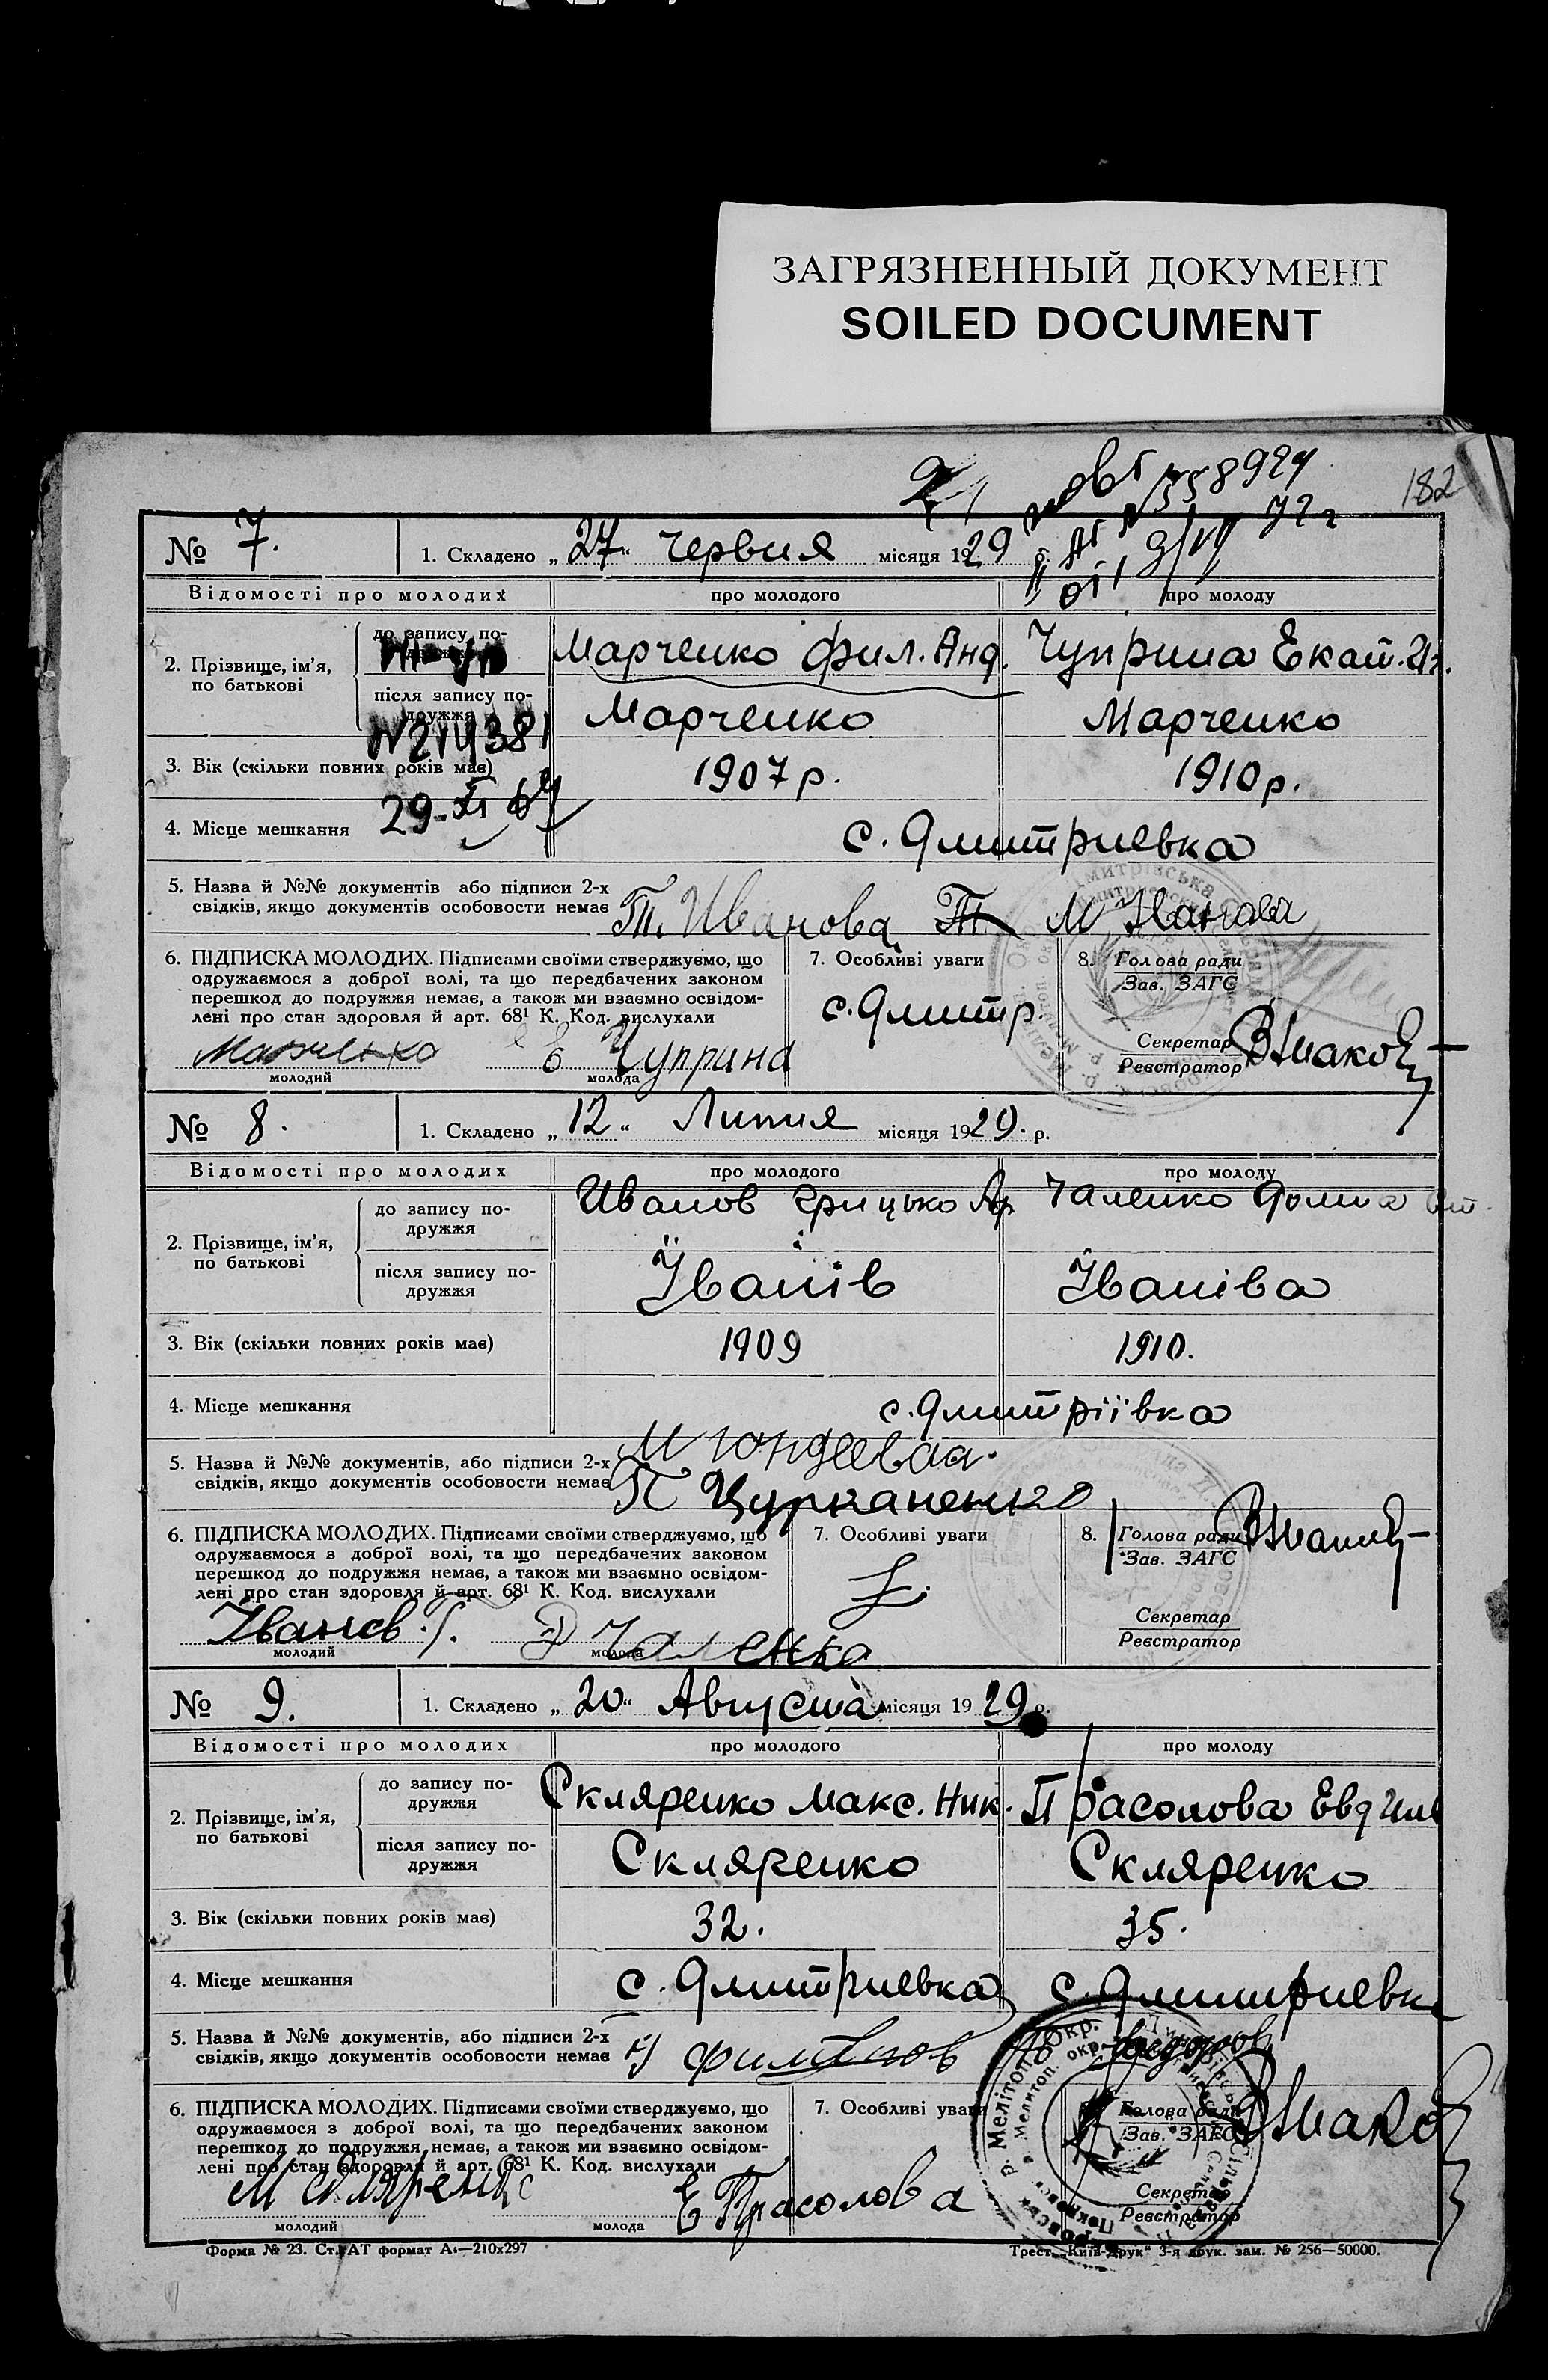 ЗАГРЯЗНЕННЫЙ ДОКУМЕНТ
SOILED DOCUMENT
182
№ 7. 1. Складено „27“ червня місяця 1929 р.
Відомості про молодих про молодого про молоду
2. Прізвище, ім’я, по батькові
до запису подружжя Марченко Фил. Анд. Чуприна Екат.
після запису подружжя Марченко Марченко
№214381
3. Вік (скільки повних років має) 1907 р. 1910 р.
29. XI 64
4. Місце мешкання с. Дмитриевка
5. Назва й №№ документів або підписи 2-х
свідків, якщо документів особовости немає Т. Иванова М Иванова
6. ПІДПИСКА МОЛОДИХ. Підписами своїми стверджуємо, що
одружаємося з доброї волі, та що передбачених законом
перешкод до подружжя немає, а також ми взаємно освідом-
лені про стан здоровля й арт. 68¹ К. Код. вислухали
Марченко Е Чуприна
молодий молода
7. Особливі уваги
с. Дмитр.
8. Голова ради
Зав. ЗАГС
Секретар
Реєстратор
№ 8. 1. Складено „12“ Липня місяця 1929. р.
Відомості про молодих про молодого про молоду
2. Прізвище, ім’я, по батькові
до запису подружжя Иванов Грицько Ар. Чаленко Домна
після запису подружжя Іванів Іваніва
3. Вік (скільки повних років має) 1909 1910.
4. Місце мешкання с. Дмитріївка
5. Назва й №№ документів, або підписи 2-х
свідків, якщо документів особовости немає
6. ПІДПИСКА МОЛОДИХ. Підписами своїми стверджуємо, що
одружаємося з доброї волі, та що передбачених законом
перешкод до подружжя немає, а також ми взаємно освідом-
лені про стан здоровля й арт. 68¹ К. Код. вислухали
Іванов Г. Д Чаленко
молодий молода
7. Особливі уваги
8. Голова ради
Зав. ЗАГС
Секретар
Реєстратор
№ 9. 1. Складено „20“ Августа місяця 1929 р.
Відомості про молодих про молодого про молоду
2. Прізвище, ім’я, по батькові
до запису подружжя Скляренко Макс. Ник. Прасолова Евд
після запису подружжя Скляренко Скляренко
3. Вік (скільки повних років має) 32. 35.
4. Місце мешкання с. Дмитриевка с. Дмитриевка
5. Назва й №№ документів, або підписи 2-х
свідків, якщо документів особовости немає
6. ПІДПИСКА МОЛОДИХ. Підписами своїми стверджуємо, що
одружаємося з доброї волі, та що передбачених законом
перешкод до подружжя немає, а також ми взаємно освідом-
лені про стан здоровля й арт. 68¹ К. Код. вислухали
М Скляренко Е Прасолова
молодий молода
7. Особливі уваги
Голова ради
Зав. ЗАГС
Секретар
Реєстратор
Форма № 23. Ст. АТ формат А₄—210х297
Трест „Київ-Друк“ 3-я друк. зам. № 256—50000.